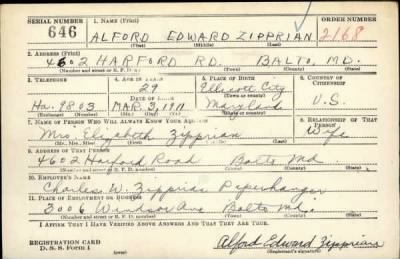 SERIAL NUMBER 1. NAME (Print) ORDER NUMBER
646 ALFORD EDWARD ZIPPRIAN 2168
(First) (Middle) (Last)
2. ADDRESS (Print)
4602 HARFORD RD. BALTO. MD.
(Number and street or R. F. D. number) (Town) (County) (State)
3. TELEPHONE 4. AGE IN YEARS 5. PLACE OF BIRTH 6. COUNTRY OF CITIZENSHIP
29 Ellicott City
DATE OF BIRTH (Town or county) U.S.
Ha. 9803 MAR. 3, 1911 Maryland
(Exchange) (Number) (Mo.) (Day) (Yr.) (State or country)
7. NAME OF PERSON WHO WILL ALWAYS KNOW YOUR ADDRESS 8. RELATIONSHIP OF THAT PERSON
Mrs. Elizabeth Zipprian Wife
(Mr., Mrs., Miss) (First) (Middle) (Last)
9. ADDRESS OF THAT PERSON
4602 Harford Road Balto Md.
(Number and street or R. F. D. number) (Town) (County) (State)
10. EMPLOYER'S NAME
Charles W. Zipprian Paperhanger
11. PLACE OF EMPLOYMENT OR BUSINESS
3006 Windsor Ave Balto Md.
(Number and street or R. F. D. number) (Town) (County) (State)
I AFFIRM THAT I HAVE VERIFIED ABOVE ANSWERS AND THAT THEY ARE TRUE.
REGISTRATION CARD
D. S. S. Form 1 (over) Alford Edward Zipprian